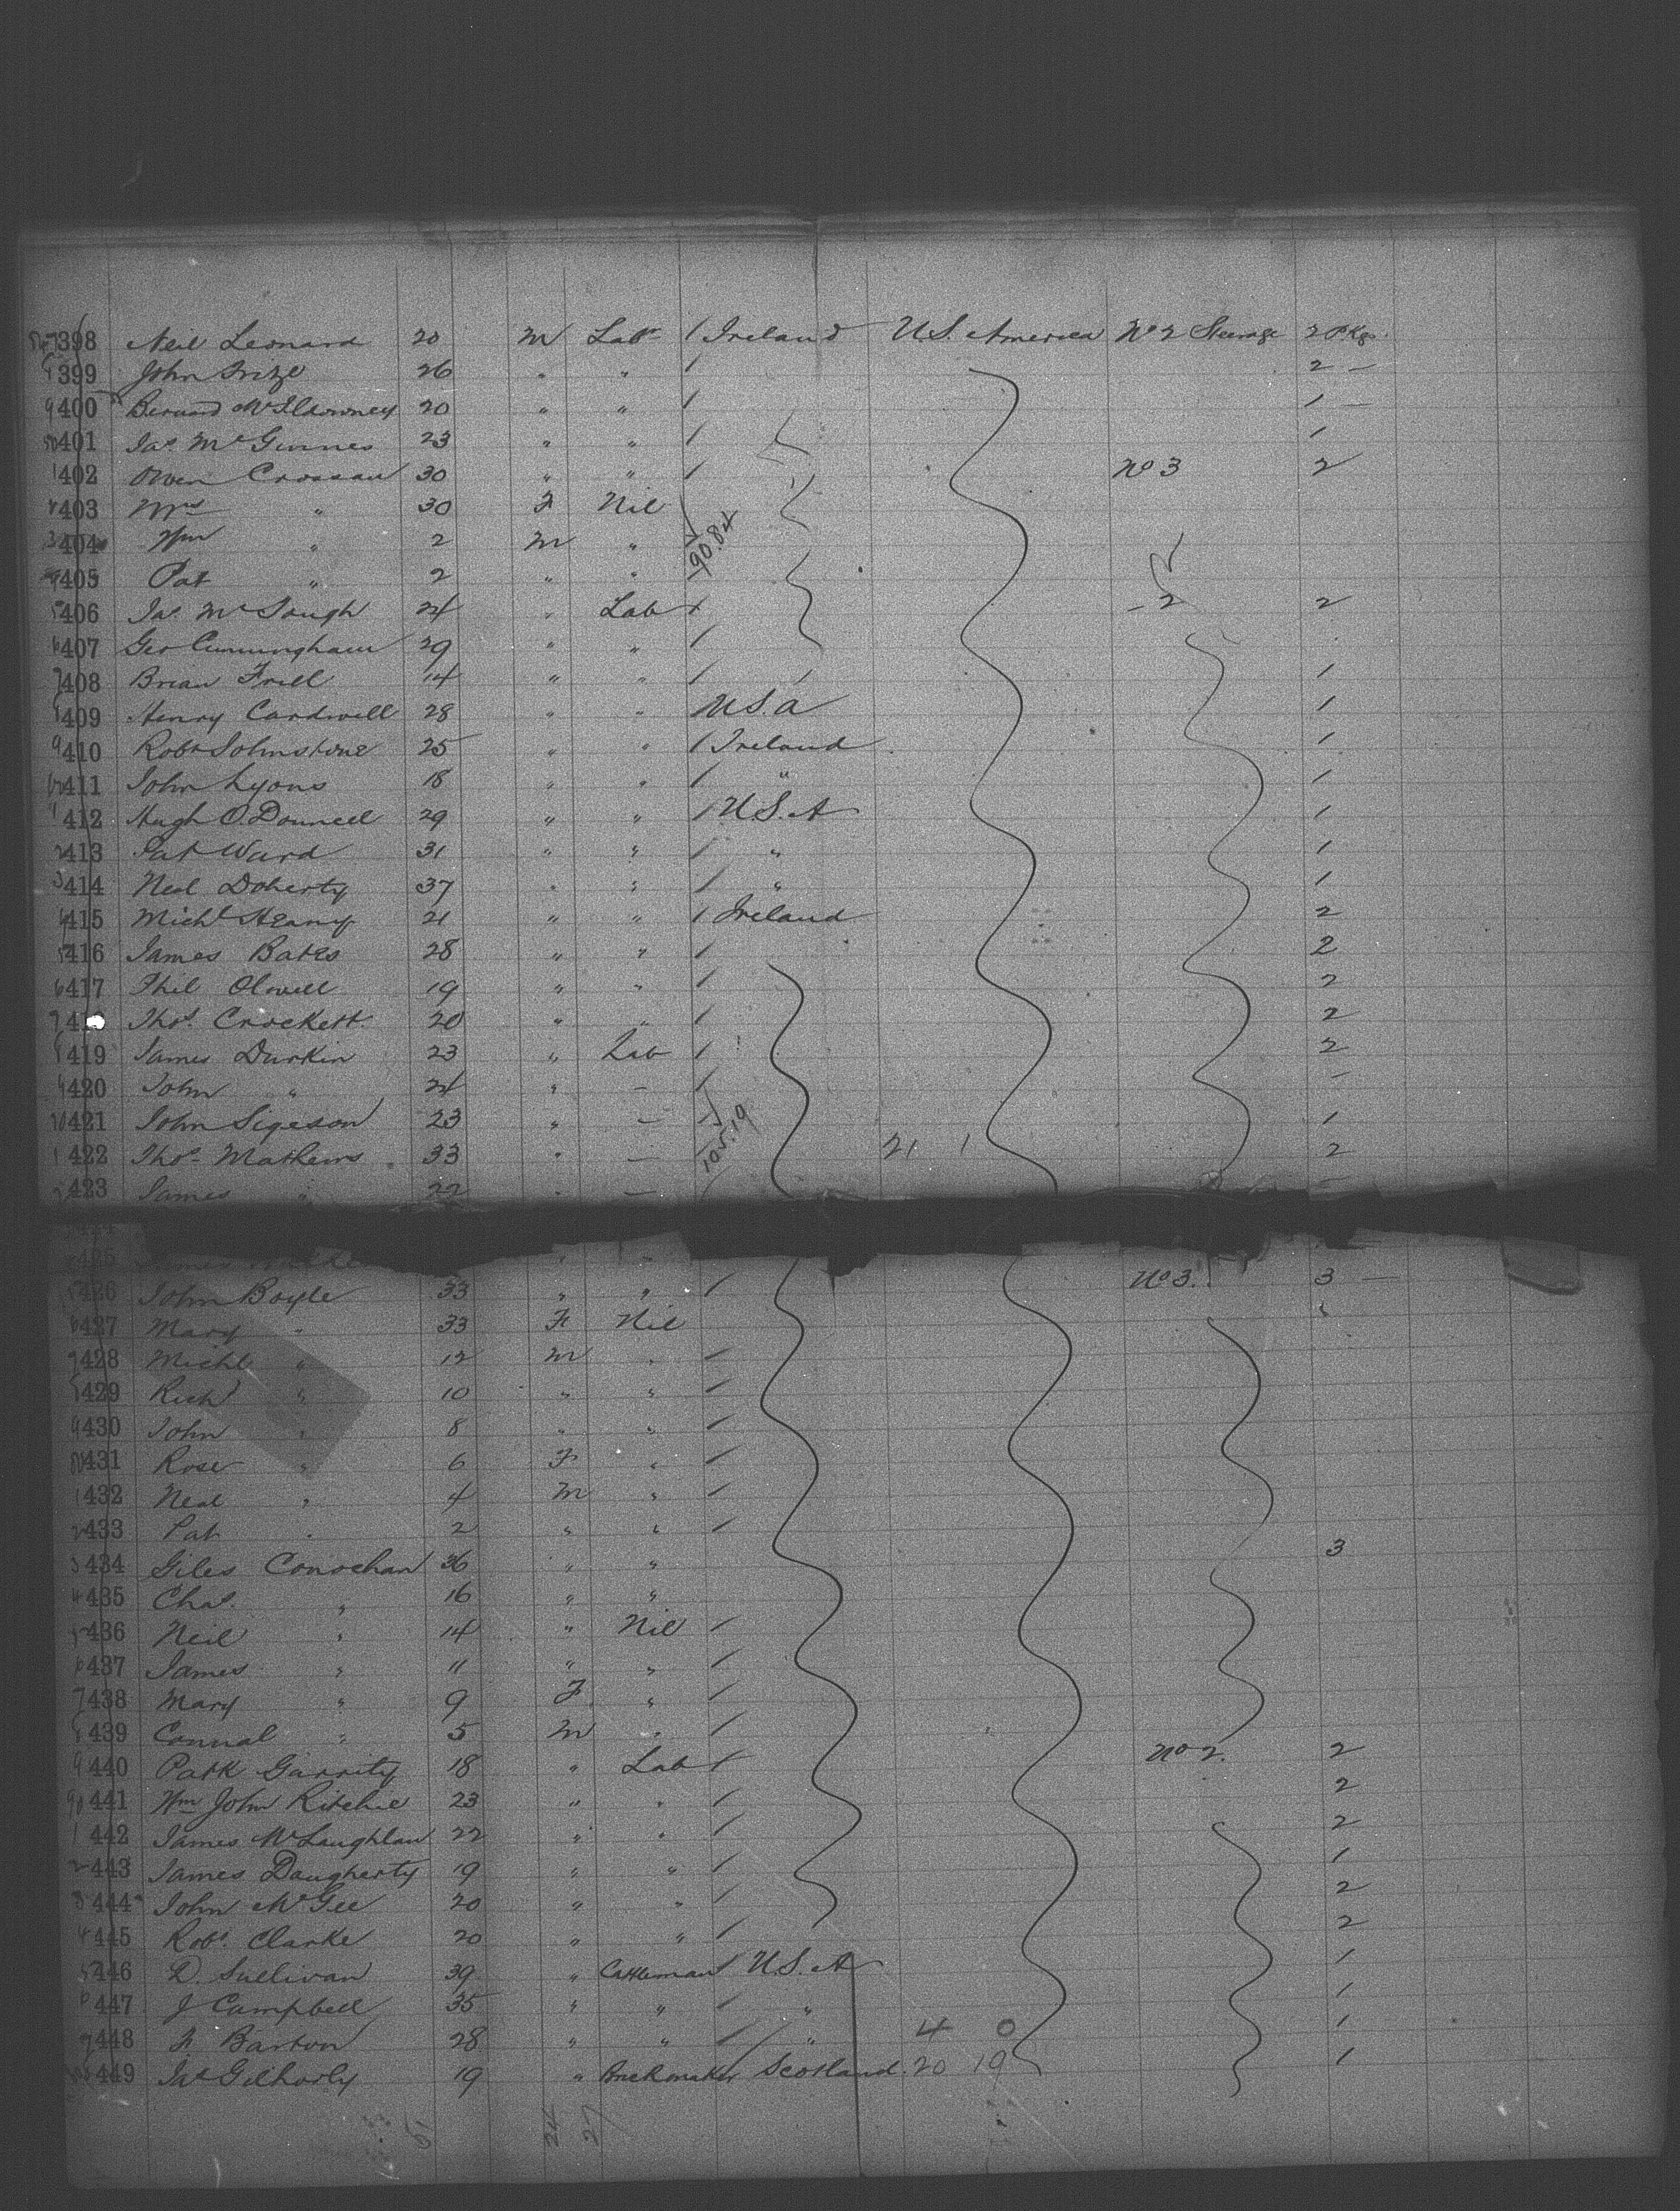 398 Neil Leonard 20 M Labr / Ireland U.S. America No 2 Steerage 2 Pkgs
399 John 26 " " / 2 —
400 Bernard 20 " " / 1 —
401 Jas McGinnes 23 " " / 1
402 Owen Crossan 30 " " / No 3 2
403 Mrs " 30 F Nil
404 Wm " 2 M " 90.84
405 Pat " 2 " "
406 Jas 24 " Lab / – 2 2
407 Geo Cunningham 29 " " /
408 Brian Friel 14 " " / 1
409 Henry Cardwell 28 " " / U.S.A 1
410 Robt Johnstone 25 " " / Ireland 1
411 John Lyons 18 " " / " 1
412 Hugh O.Donnell 29 " " / U.S.A 1
413 Pat Ward 31 " " / " 1
414 Neal Doherty 37 " " / " 1
415 Michl Heany 21 " " / Ireland 2
416 James Bates 28 " " / 2
417 Phil 19 " " / 2
Thos. Crockett 20 " " / 2
419 James Durkin 23 " Lab / 2
420 John " 24 " — / –
421 John Sigeson 23 " — / 1
422 Thos. Mathews 33 " — 105.19 21 1 2
423 James " 22 " — / –
424
425 James
426 John Boyle 33 " " / No 3. 3 —
427 Mary " 33 F Nil "
428 Michl " 12 M " /
429 Rich " 10 " " /
430 John " 8 " " /
431 Rose " 6 F " /
432 Neal " 4 M " /
433 Pat " 2 " " /
434 Giles Conoghan 36 " " 3
435 Chas. " 16 " "
436 Neil " 14 " Nil /
437 James " 11 " " /
438 Mary " 9 F " /
439 Connal " 5 M " /
440 Patk Garrity 18 " Lab / No 2. 2
441 Wm John Ritchie 23 " " / 2
442 James McLaughlan 22 " " / 2
443 James Daugherty 19 " " / 1
444 John McGee 20 " " / 2
445 Robt. Clarke 20 " " / 2
446 D. Sullivan 39 " Cattleman / U.S.A 1
447 J Campbell 35 " " / " 1
448 Barton 28 " " / " 4 0 1
449 Jas Gilhooly 19 " Scotland. 20 19 1
24 27